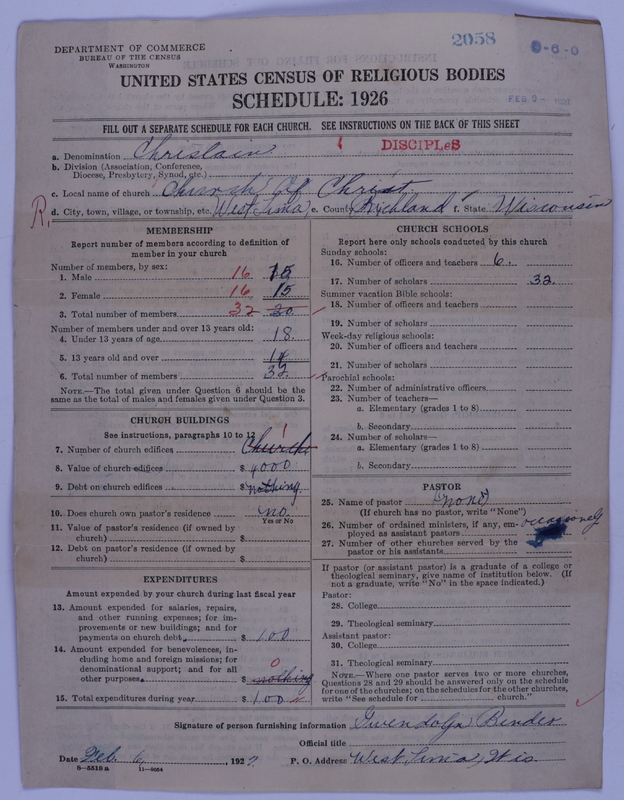 2058
DEPARTMENT OF COMMERCE
BUREAU OF THE CENSUS
WASHINGTON
FEB 9-
UNITED STATES CENSUS OF RELIGIOUS BODIES
SCHEDULE: 1926
FILL OUT A SEPARATE SCHEDULE FOR EACH CHURCH. SEE INSTRUCTIONS ON THE BACK OF THIS SHEET
a. Denomination Christain DISCIPLeS
b. Division (Association, Conference,
Diocese, Presbytery, Synod, etc.)
c. Local name of church Church Of Christ
R, d. City, town, village, or township, etc. West Lima e. County Richland f. State Wisconsin
MEMBERSHIP
Report number of members according to definition of
member in your church
Number of members, by sex:
1. Male 16 15
2. Female 16 15
3. Total number of members 32 30
Number of members under and over 13 years old:
4. Under 13 years of age 18
5. 13 years old and over 14
6. Total number of members 32
NOTE.—The total given under Question 6 should be
same as the total of males and females given under Question 3.
CHURCH BUILDINGS
See instructions, paragraphs 10 to 12
7. Number of church edifices 1 Church
8. Value of church edifices $ 4000
9. Debt on church edifices $ nothing
10. Does church own pastor's residence no.
Yes or No
11. Value of pastor's residence (if owned by
church) $
12. Debt on pastor's residence (if owned by
church) $
EXPENDITURES
Amount expended by your church during last fiscal year
13. Amount expended for salaries, repairs,
and other running expenses; for im-
provements or new buildings; and for
payments on church debt $ 100
14. Amount expended for benevolences, in-
cluding home and foreign missions; for
denominational support; and for all
other purposes $ 0 nothing
15. Total expenditures during year $ 100
CHURCH SCHOOLS
Report here only schools conducted by this church
Sunday schools:
16. Number of officers and teachers 6.
17. Number of scholars 32.
Summer vacation Bible schools:
18. Number of officers and teachers
19. Number of scholars
Week-day religious schools:
20. Number of officers and teachers
21. Number of scholars
Parochial schools:
22. Number of administrative officers
23. Number of teachers—
a. Elementary (grades 1 to 8)
b. Secondary
24. Number of scholars—
a. Elementary (grades 1 to 8)
b. Secondary
PASTOR
25. Name of pastor none
(If church has no pastor, write "None")
26. Number of ordained ministers, if any, em-
ployed as assistant pastors
27. Number of other churches served by the
pastor or his assistants
If pastor (or assistant pastor) is a graduate of a college or
theological seminary, give name of institution below. (If
not a graduate, write "No" in the space indicated.)
Pastor:
28. College
29. Theological seminary
Assistant pastor:
30. College
31. Theological seminary
NOTE.—Where one pastor serves two or more churches,
Questions 28 and 29 should be answered only on the schedule
for one of the churches; on the schedules for the other churches,
write "See schedule for church."
Signature of person furnishing information Gwendolyn Bender
Official title
Date Feb. 6, 1927 P. O. Address West Lima, Wis
8-5518a 11-9054